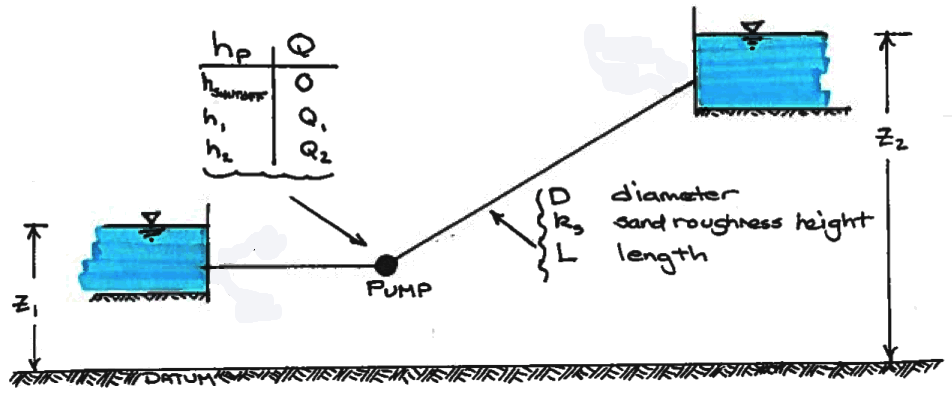 hₚ Q
h_SHUTOFF O
h₁ Q₁
h₂ Q₂
Z₂
D diameter
kₛ sand roughness height
L length
PUMP
Z₁
DATUM